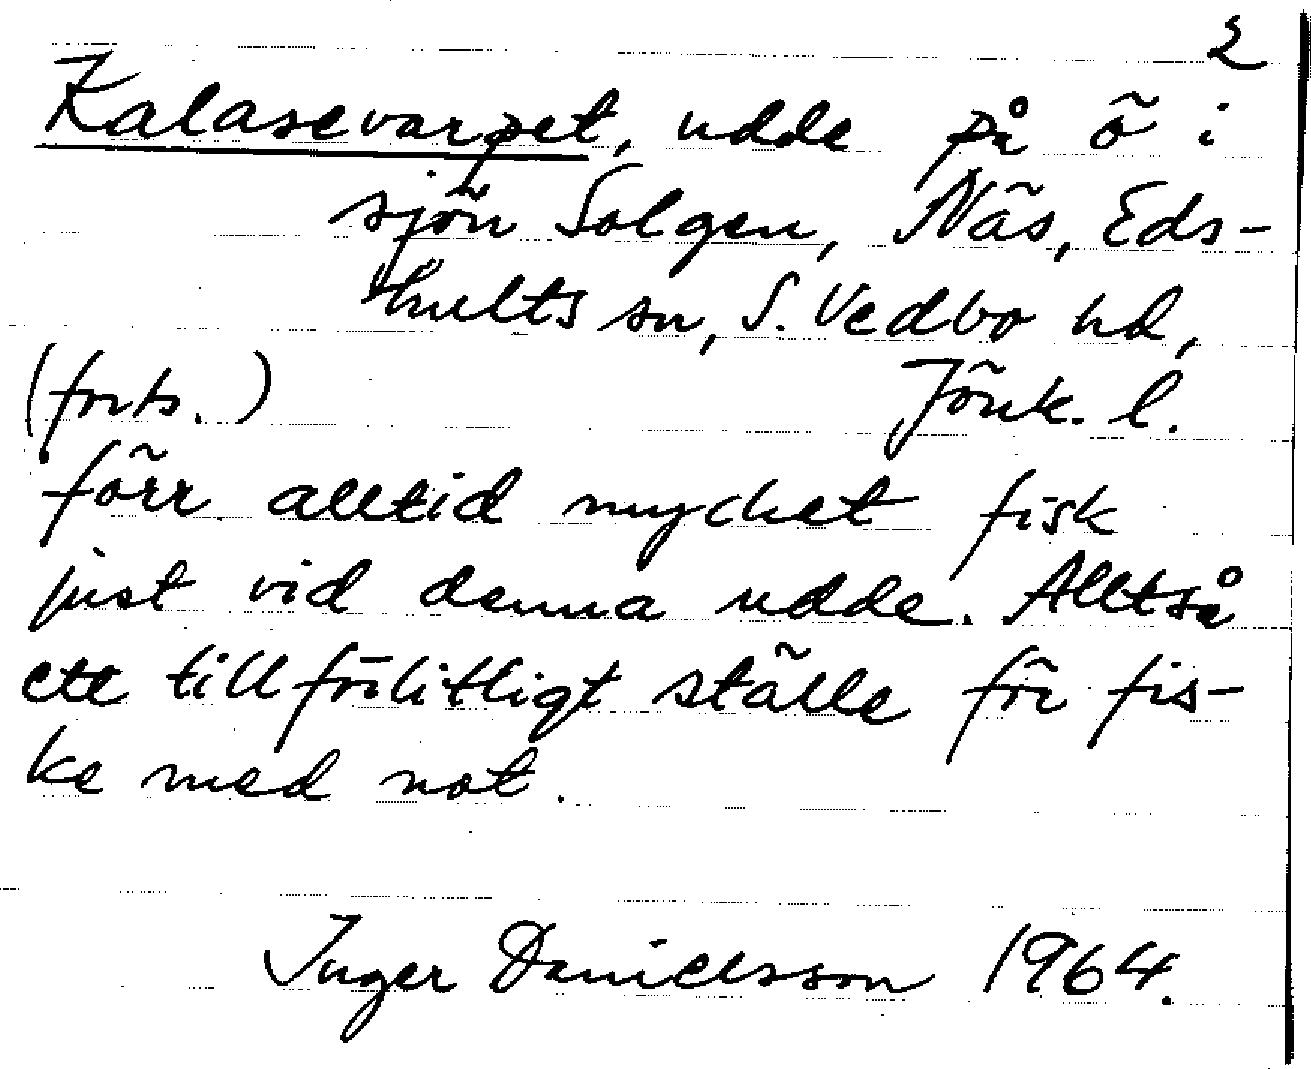 2
Kalasevarpet, udde på ö i
sjön Solgen, Näs, Eds-
hults sn, S. Vedbo hd,
(forts.) Jönk. l.
förr alltid mycket fisk
just vid denna udde. Alltså
ett tillförlitligt ställe för fis-
ke med not.
Inger Danielsson 1964.